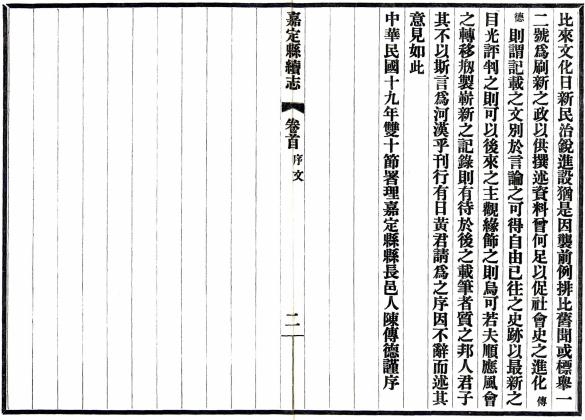 比來文化日新民治銳進設猶是因襲前例排比舊聞或標舉一
二號爲刷新之政以供撰述資料曾何足以促社會史之進化傳
德則謂記載之文別於言論之可得自由已往之史跡以最新之
目光評判之則可以後來之主觀緣飾之則烏可若夫順應風會
之轉移剏製嶄新之記錄則有待於後之載筆者質之邦人君子
其不以斯言爲河漢乎刊行有日黃君請爲之序因不辭而述其
意見如此
中華民國十九年雙十節署理嘉定縣縣長邑人陳傳德謹序
嘉定縣續志 卷首 序文 二